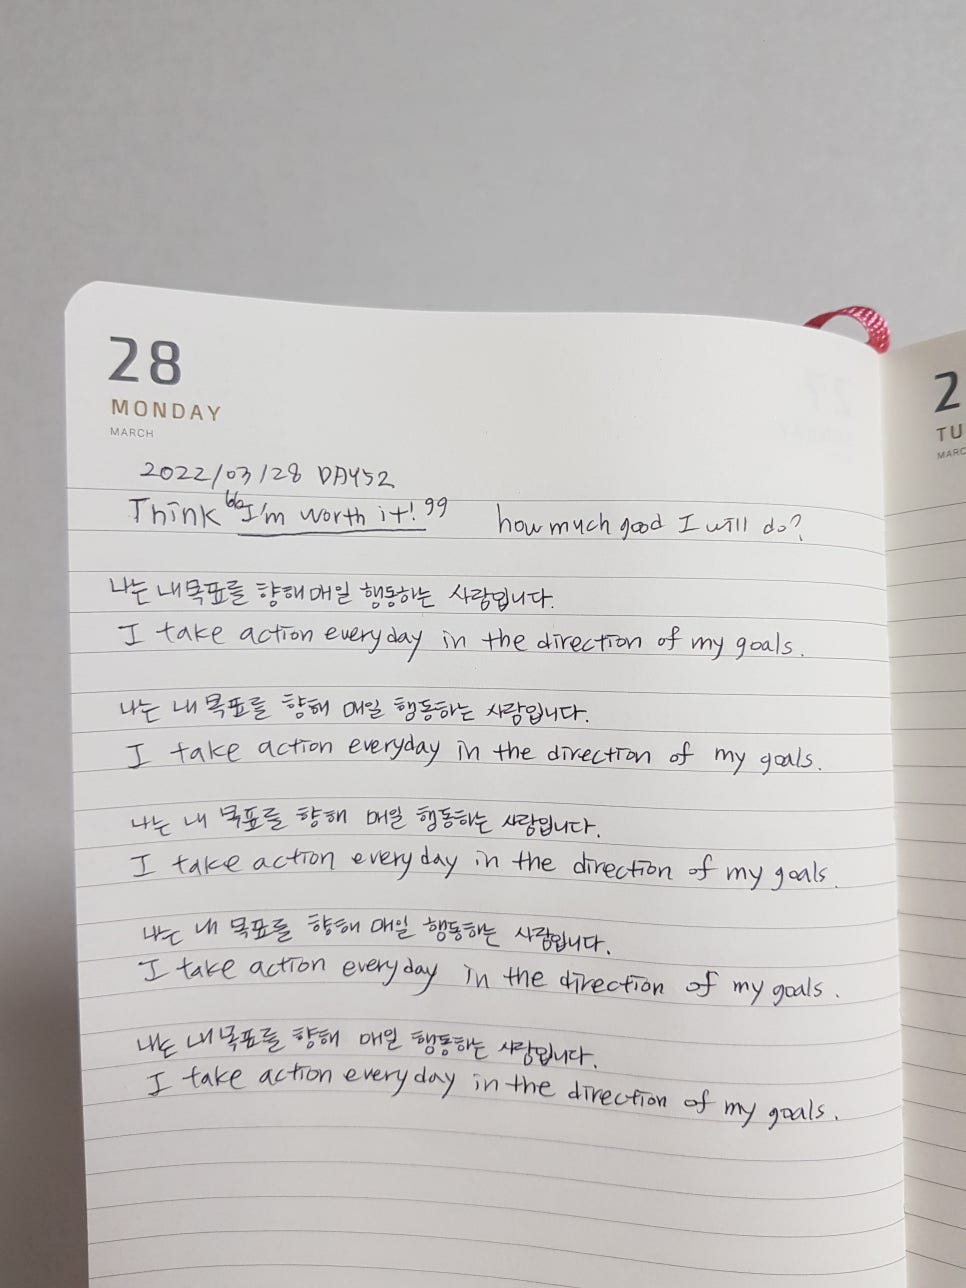 28
MONDAY
MARCH
2022/03/28 DAY52
Think "I'm worth it!" how much good I will do?
나는 내 목표를 향해 매일 행동하는 사람입니다.
I take action everyday in the direction of my goals.
나는 내 목표를 향해 매일 행동하는 사람입니다.
I take action everyday in the direction of my goals.
나는 내 목표를 향해 매일 행동하는 사람입니다.
I take action everyday in the direction of my goals.
나는 내 목표를 향해 매일 행동하는 사람입니다.
I take action everyday in the direction of my goals.
나는 내 목표를 향해 매일 행동하는 사람입니다.
I take action everyday in the direction of my goals.
2
TU
MARC